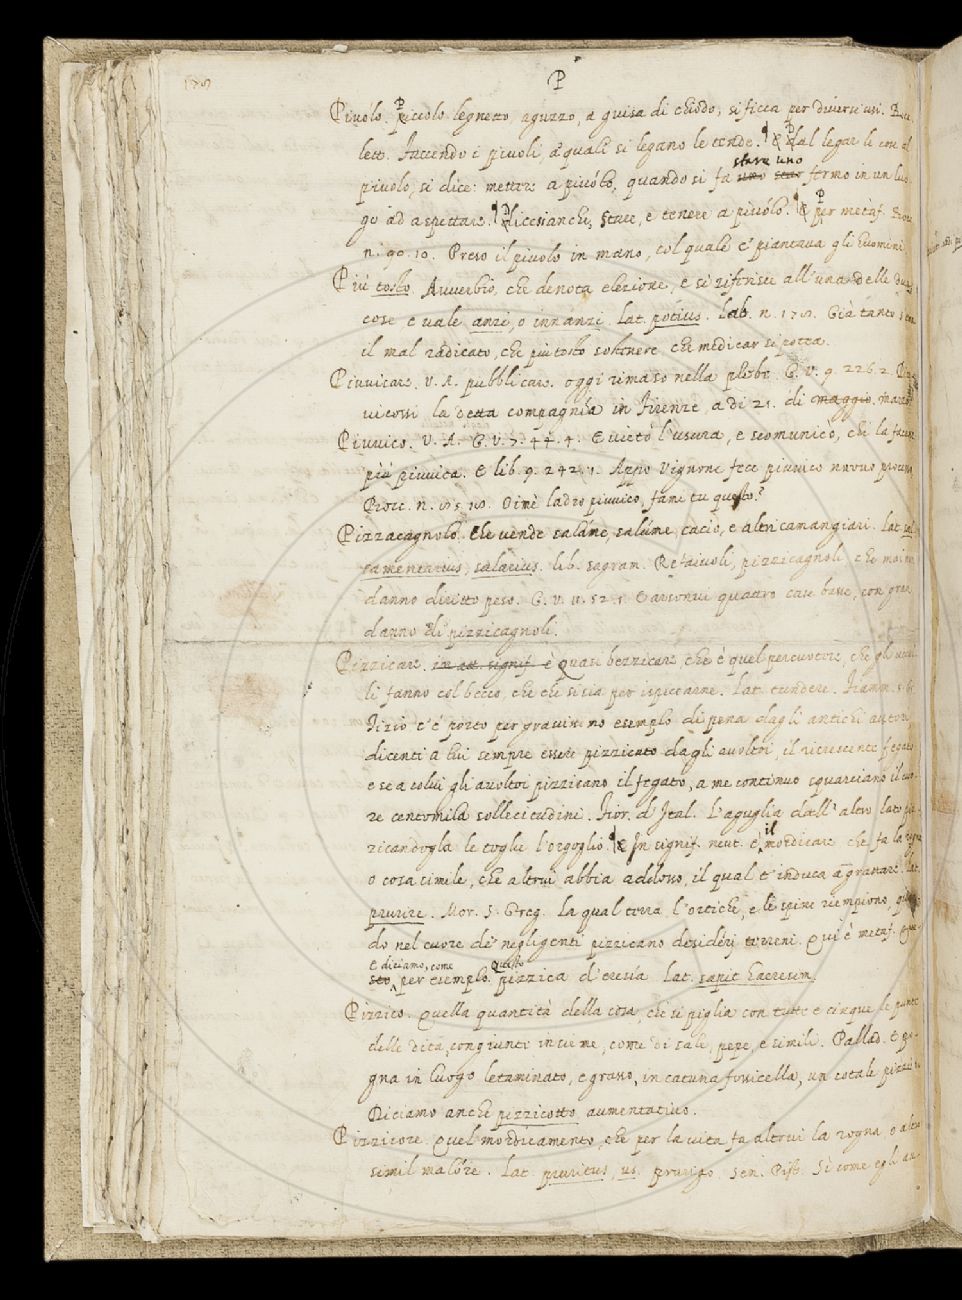 P
Pivólo. Piccolo legnetto, aguzzo, a guisa di chiodo; si ficca per diversi usi. Bocc.
lett. Facendo i pivoli, a' quali si legano le tende. ¶ Dal legar le cose al
pivolo, si dice: mettere a pivólo, quando si fa stare uno fermo in un luo-
go ad aspettare. ¶ Dicesi anche, stare, e tenere a pivólo. ¶ Per metaf. Bocc.
n. 90. 10. Preso il pivolo in mano, col quale e' piantava gli huomini
Più tosto. Avverbio, che denota elezione, e si riferisce all' una delle due
cose, e vale anzi, o innanzi. Lat. potius. Lab. n. Già tanto
il mal radicato, che più tosto sostenere che medicar si potea.
Piuvicare. V. A. pubblicare. oggi rimaso nella plebe. G. V. 9. 226. 2.
vicossi la detta compagnia in Firenze, a dì 21. di maggio. marzo
Piuvico. V. A. G. V. 7. 44. 4. E vietò l'usura, e scomunicò, chi la facesse
più piuvica. E lib. 9. 242. 1. Appo Vignone fece piuvico nuovo
Bocc. n. Oimè ladro piuvico, fami tu questo?
Pizzacagnolo. Che vende salame, salúme, cacio, e altri camangiari. Lat. sal-
samentarius, salarius. lib. sagram. Retaivoli, pizzicagnoli che
danno diritto peso. G. V. 11. 52. 1. E arsonvi quattro case basse, con gran
danno di pizzicagnoli.
Pizzicare. in att. signif. è Quasi bezzicare, che è quel percuotere, che gli uccel-
li fanno col becco, che che si sia per ispiccarne. Lat. tundere. Fiamm.
Tizio c' è porto per gravissimo esemplo di pena dagli antichi autori,
dicenti a lui sempre essere pizzicato dagli avoltoi, il ricrescente fegato
e se a colui gli avoltoi pizzicano il fegato, a me continuo squarciano il cuo-
re centomila sollecitudini. Fior. d' Ital. L'aguglia dall' altro lato piz-
zicandogla le toglie l'orgoglio. ¶ In signif. neut. è il mordicare che fa la rogna
o cosa simile, che altrui abbia addosso, il qual c' induca a grattare. Lat.
prurire. Mor. S. Greg. La qual terra l'ortiche, e le spine riempiono,
do nel cuore de' negligenti pizzicano desidérj terreni. Qui è metaf.
E diciamo, come per esemplo. Questo pizzica d'eresia. Lat. sapit haeresim.
Pizzico. Quella quantità della cosa, che si piglia con tutte e cinque le punte
delle dita, congiunte insieme, come di sale, pepe, e simili. Pallad. E po-
gna in luogo letaminato, e grasso, in catuna fossicella, un cotale pizzico
Diciamo anche pizzicotto aumentativo.
Pizzicore. Quel mordicamento, che per la vita fa altrui la rogna, o altro
simil malóre. Lat. pruritus, us. prurigo. Sen. Pist. Sì come egli av-